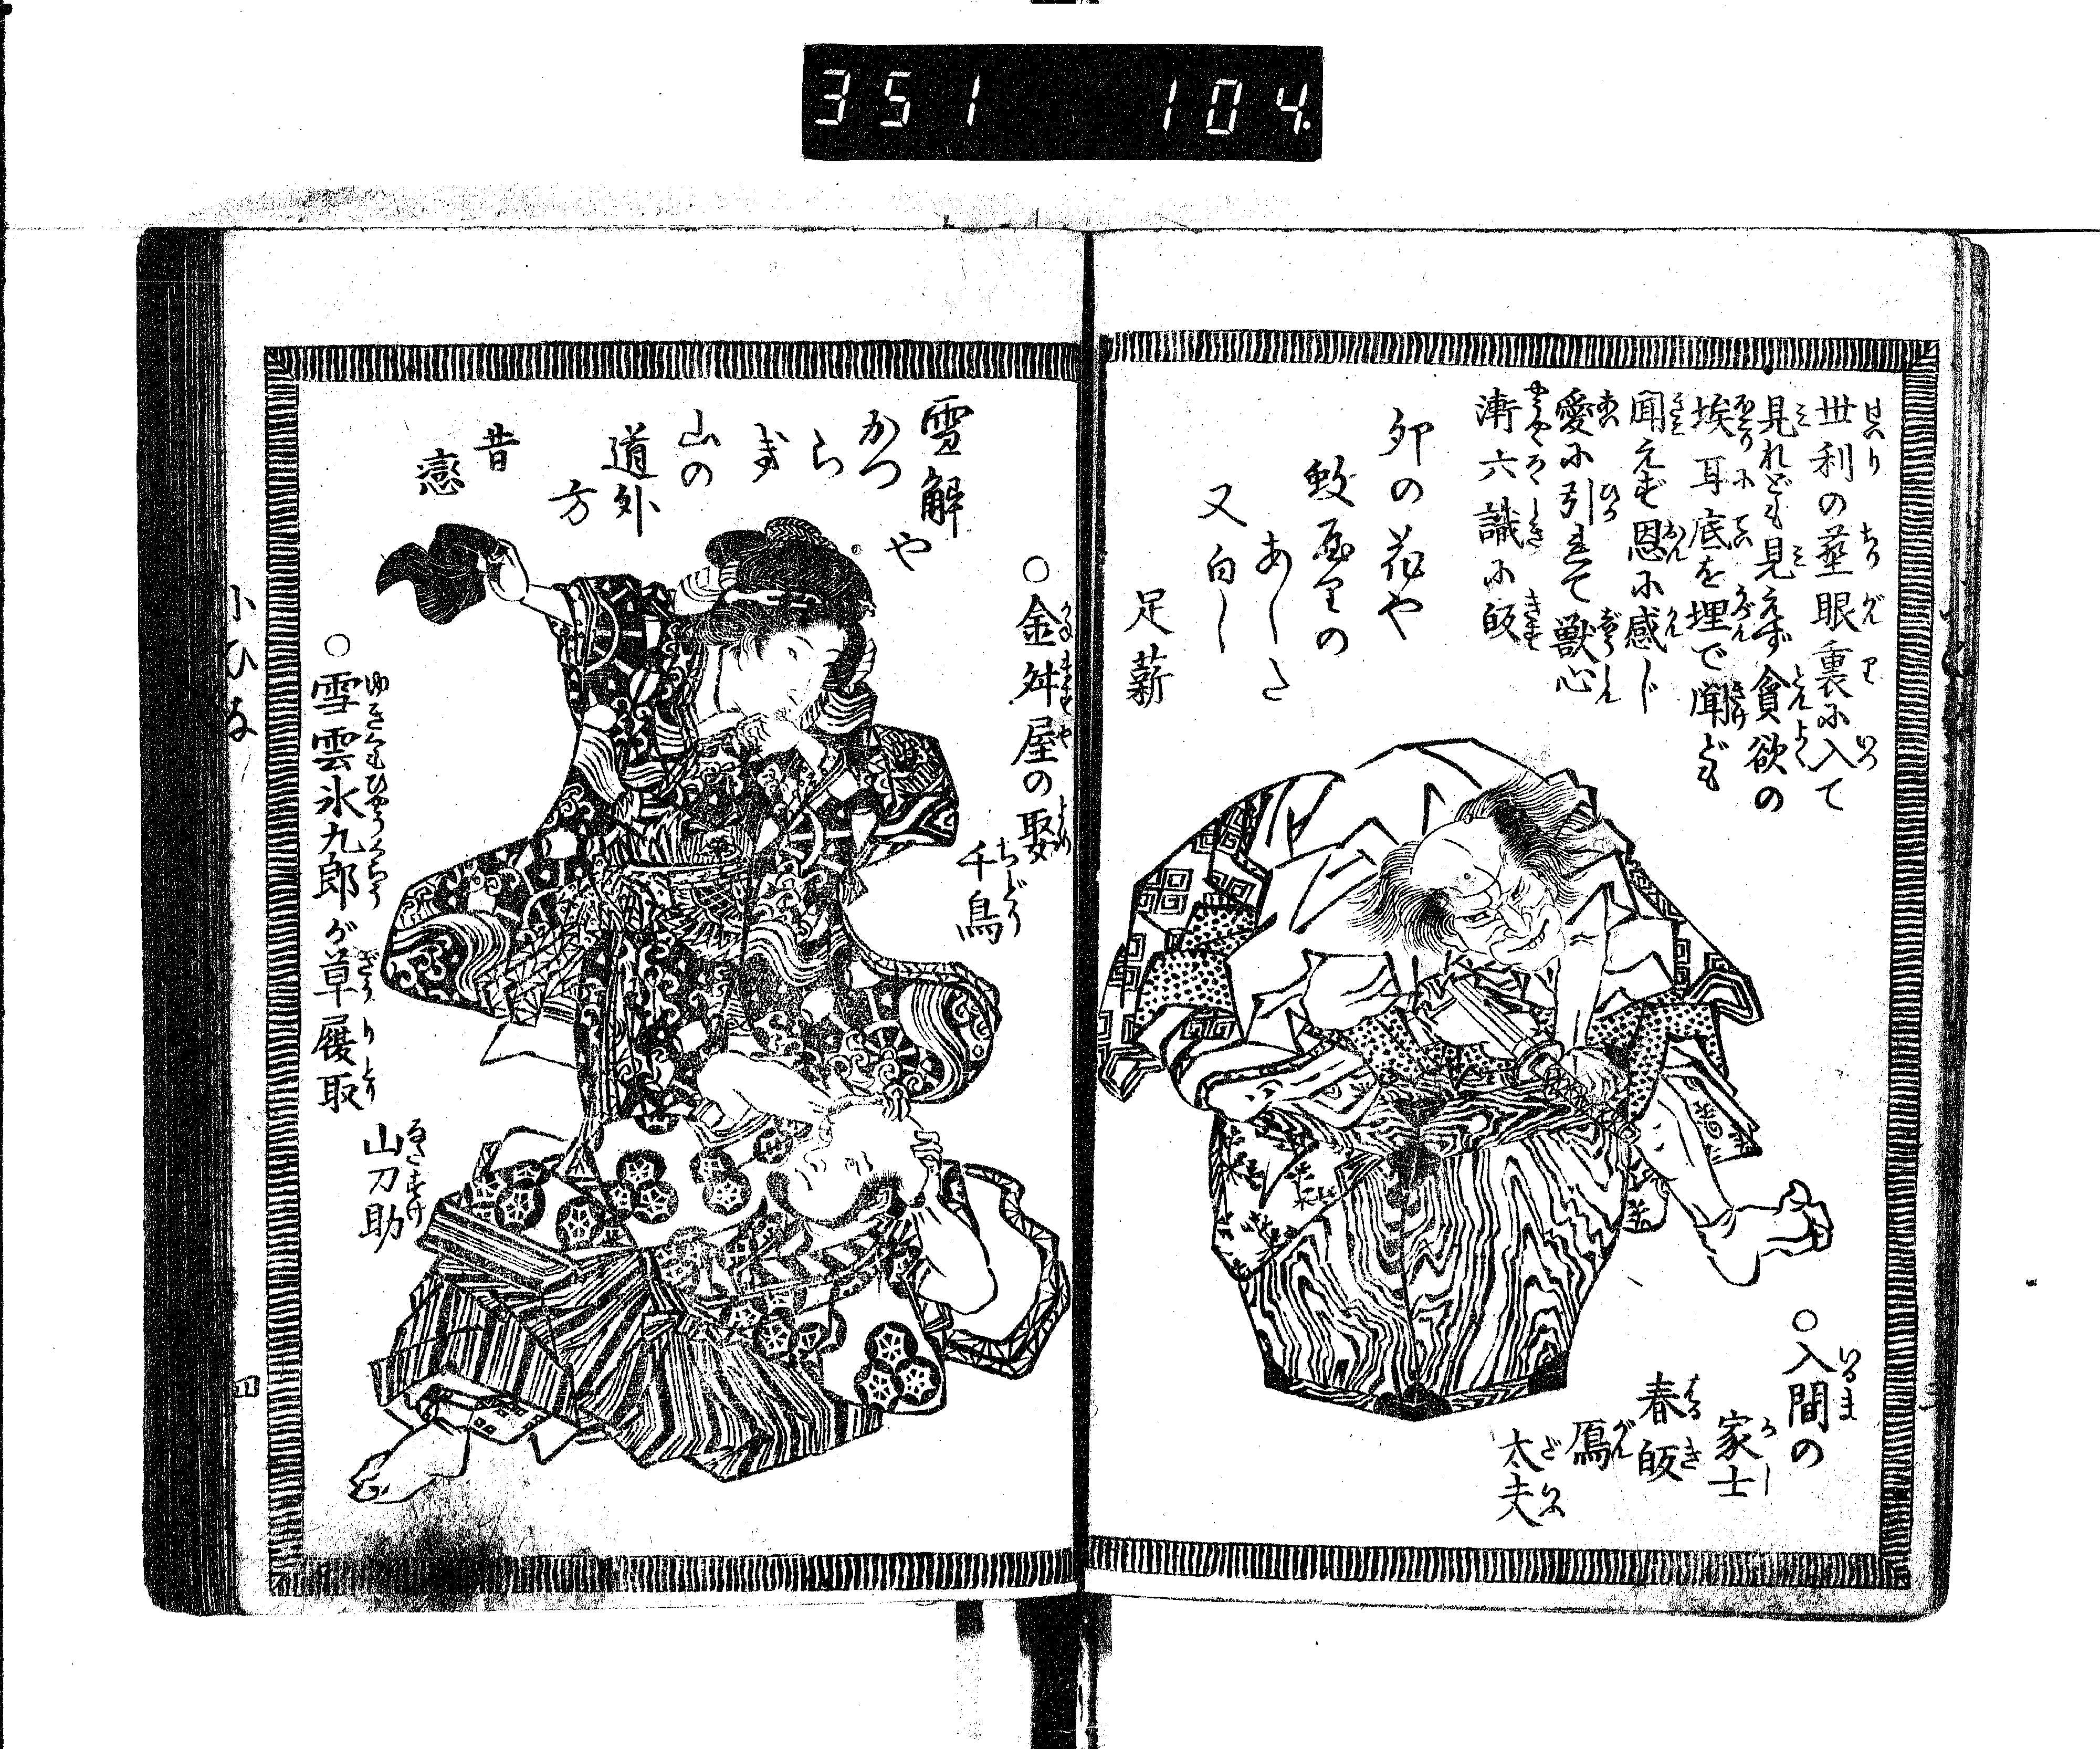 351 104.
世利の塵眼裏に入て
見れども見えず貪欲の
埃耳底を埋で聞ども
聞えず恩に感じ
愛に引れて獣心
漸六識に皈
卯の花や
蚊屋の
あした
又白し
足薪
○入間の
家士
春皈
鴈
太夫
○金舛屋の娶
千鳥
雪解
や
かつ
らぎ
山の
道外
方
昔
戀
○雪雲氷九郎が草履取
山刀助
小ひな
四